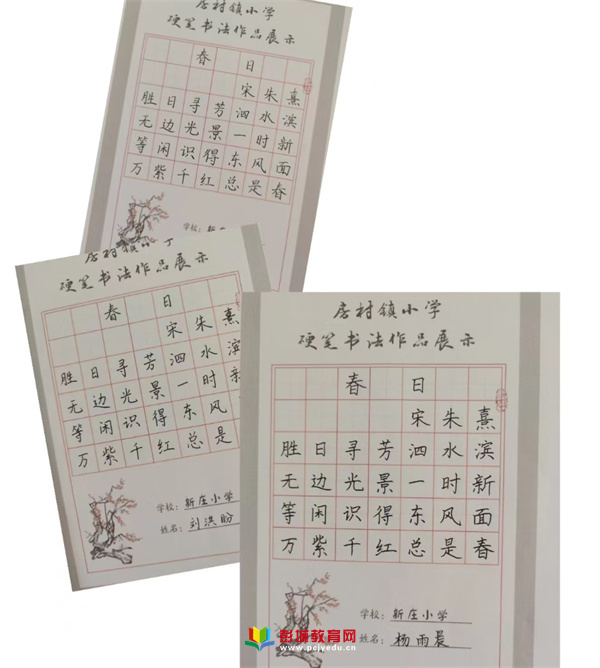 房村镇小学
硬笔书法作品展示
春 日
宋 朱 熹
胜 日 寻 芳 泗 水 滨
无 边 光 景 一 时 新
等 闲 识 得 东 风 面
万 紫 千 红 总 是 春
学校：新
房村镇小学
硬笔书法作品展示
春 日
宋 朱 熹
胜 日 寻 芳 泗 水 滨
无 边 光 景 一 时 新
等 闲 识 得 东 风
万 紫 千 红 总 是
学校：新庄小学
姓名：刘洪盼
房村镇小学
硬笔书法作品展示
春 日
宋 朱 熹
胜 日 寻 芳 泗 水 滨
无 边 光 景 一 时 新
等 闲 识 得 东 风 面
万 紫 千 红 总 是 春
学校：新庄小学
姓名：杨雨晨
彭城教育网
www.pcjyedu.cn